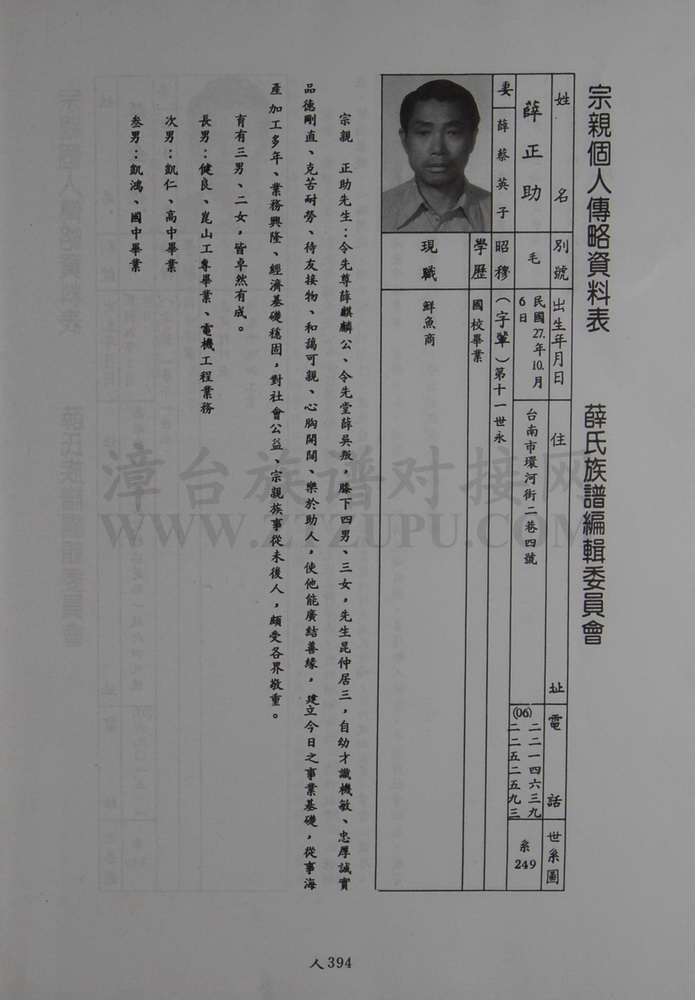 宗親個人傳略資料表　薛氏族譜編輯委員會
姓名　別號　出生年月日　住址　電話　世系圖
薛正助　毛　民國27.年10.月6日　台南市環河街二巷四號　(06)二二一四六三九　二二五二五九三　系249
妻　薛蔡英子　昭穆　(字輩)第十一世永
學歷　國校畢業
現職　鮮魚商
宗親　正助先生：令先尊薛麒麟公、令先堂薛吳叛，膝下四男、三女，先生昆仲居三，自幼才識機敏、忠厚誠實
品德剛直、克苦耐勞、待友接物、和藹可親、心胸開闊、樂於助人，使他能廣結善緣，建立今日之事業基礎，從事海
產加工多年、業務興隆、經濟基礎穩固，對社會公益、宗親族事從未後人，頗受各界敬重。
育有三男、二女，皆卓然有成。
長男：健良、崑山工專畢業、電機工程業務
次男：凱仁、高中畢業
叁男：凱鴻、國中畢業
人394
漳台族谱对接网
WWW.ZTZUPU.COM